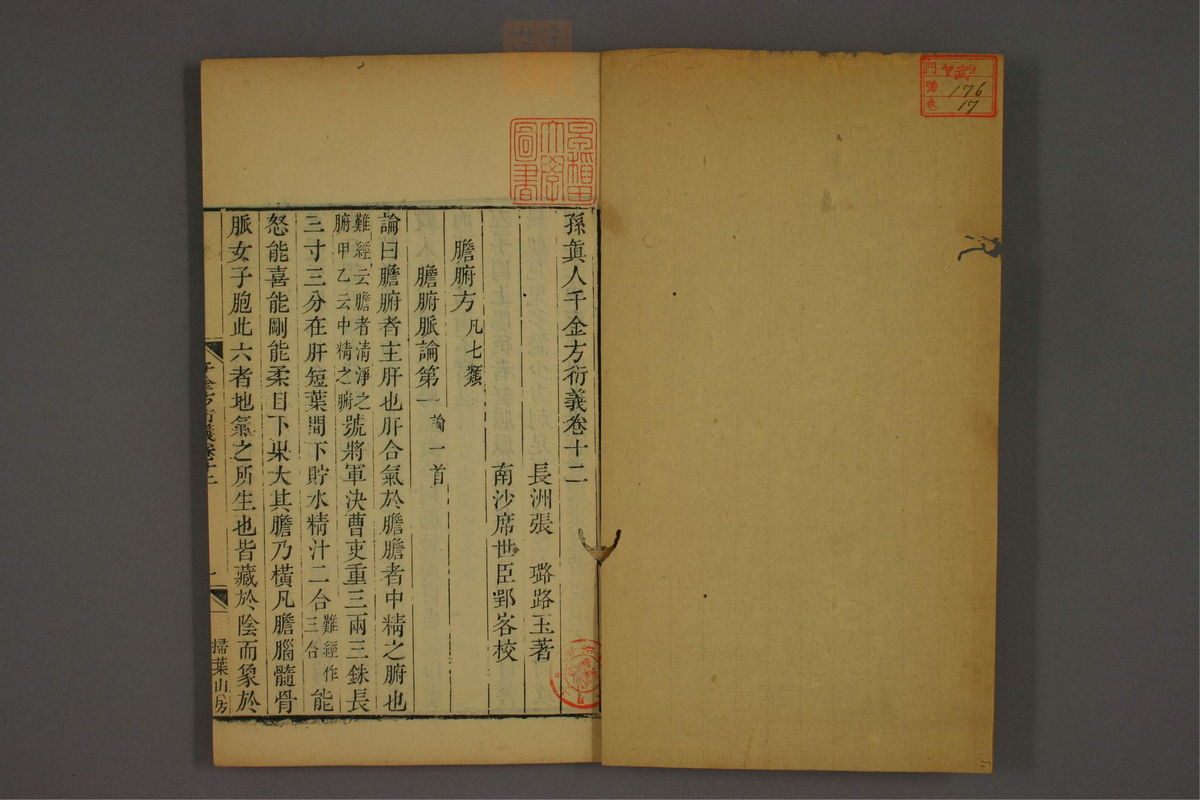 孫眞人千金方衍義卷十二
長洲張　璐路玉著
南沙席世臣郢客校
膽腑方凡七類
膽腑脈論第一論一首
論曰膽腑者主肝也肝合氣於膽膽者中精之腑也
難經云膽者淸淨之
腑甲乙云中精之腑
號將軍決曹吏重三兩三銖長
三寸三分在肝短葉間下貯水精汁二合
難經作
三合
能
怒能喜能剛能柔目下果大其膽乃橫凡膽腦髓骨
脈女子胞此六者地氣之所生也皆藏於陰而象於
千金方衍義卷十二
一
掃葉山房
早稻田
大學
圖書
門
號
卷
176
17